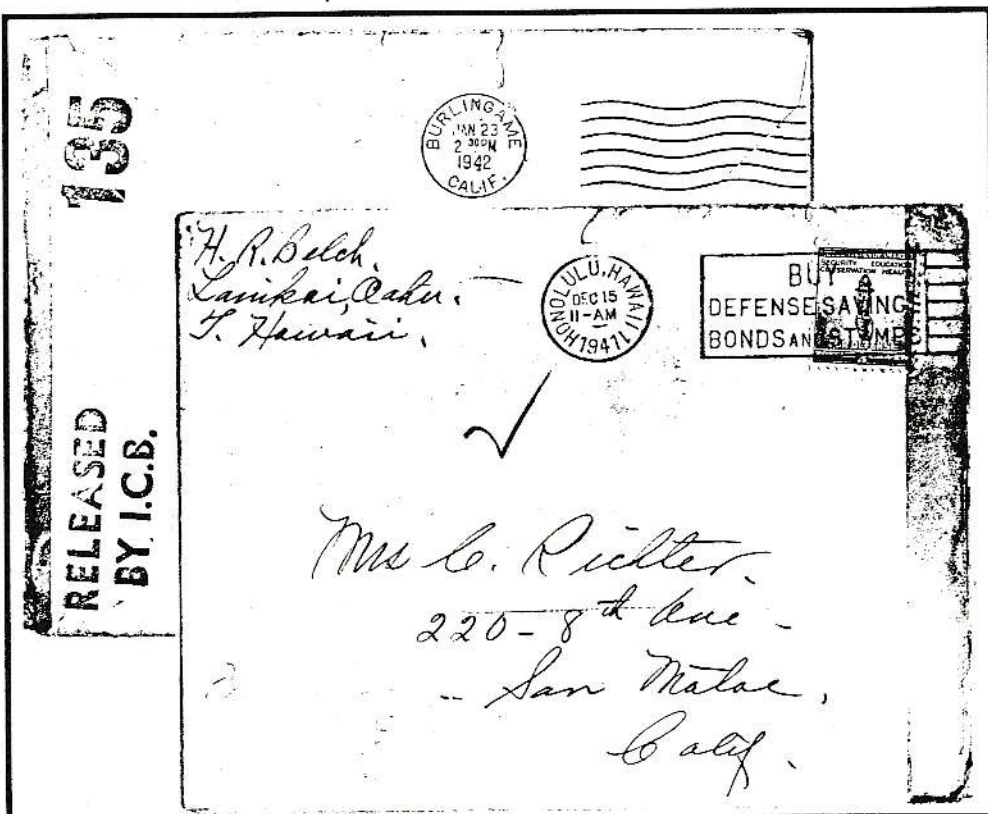 135
RELEASED
BY I.C.B.
BURLINGAME
JAN 23
2 30PM
1942
CALIF.
H. R. Belch.
Lanikai, Oahu.
T. Hawaii.
HONOLULU, HAWAII
DEC 15
11-AM
1941
BUY
DEFENSE SAVING
BONDS AND STAMP
SECURITY EDUCATION
CONSERVATION HEALTH
Mrs C. Richter.
220 - 8th Ave -
- San Matae,
Calif.